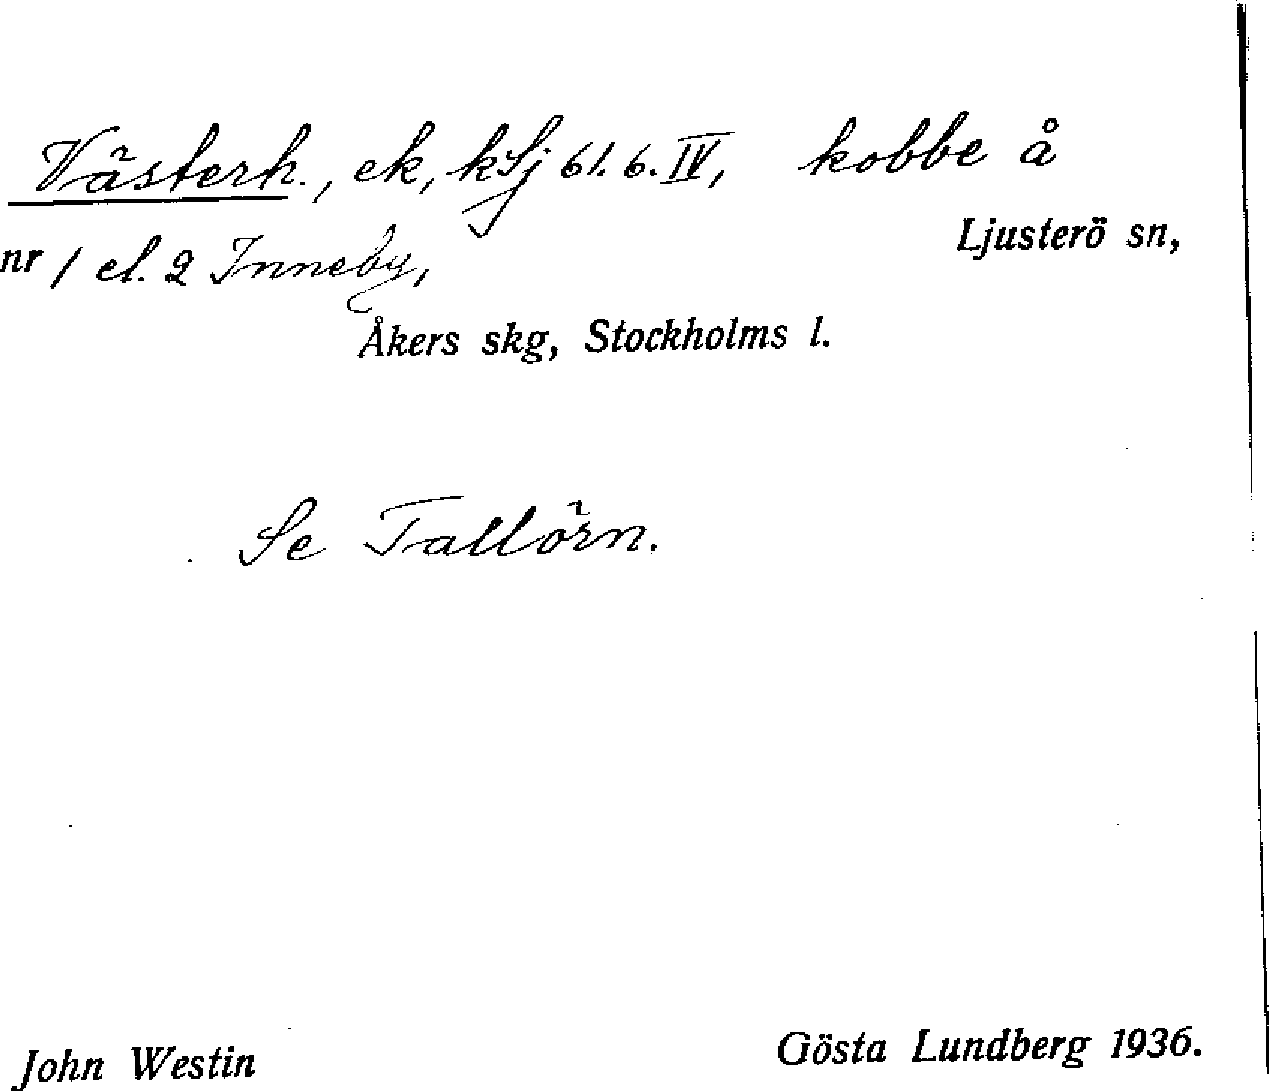 Västerh., ek, kSj 61.6.IV, kobbe å
Ljusterö sn,
nr 1 el. 2 Inneby,
Åkers skg, Stockholms l.
Se Tallörn.
John Westin
Gösta Lundberg 1936.